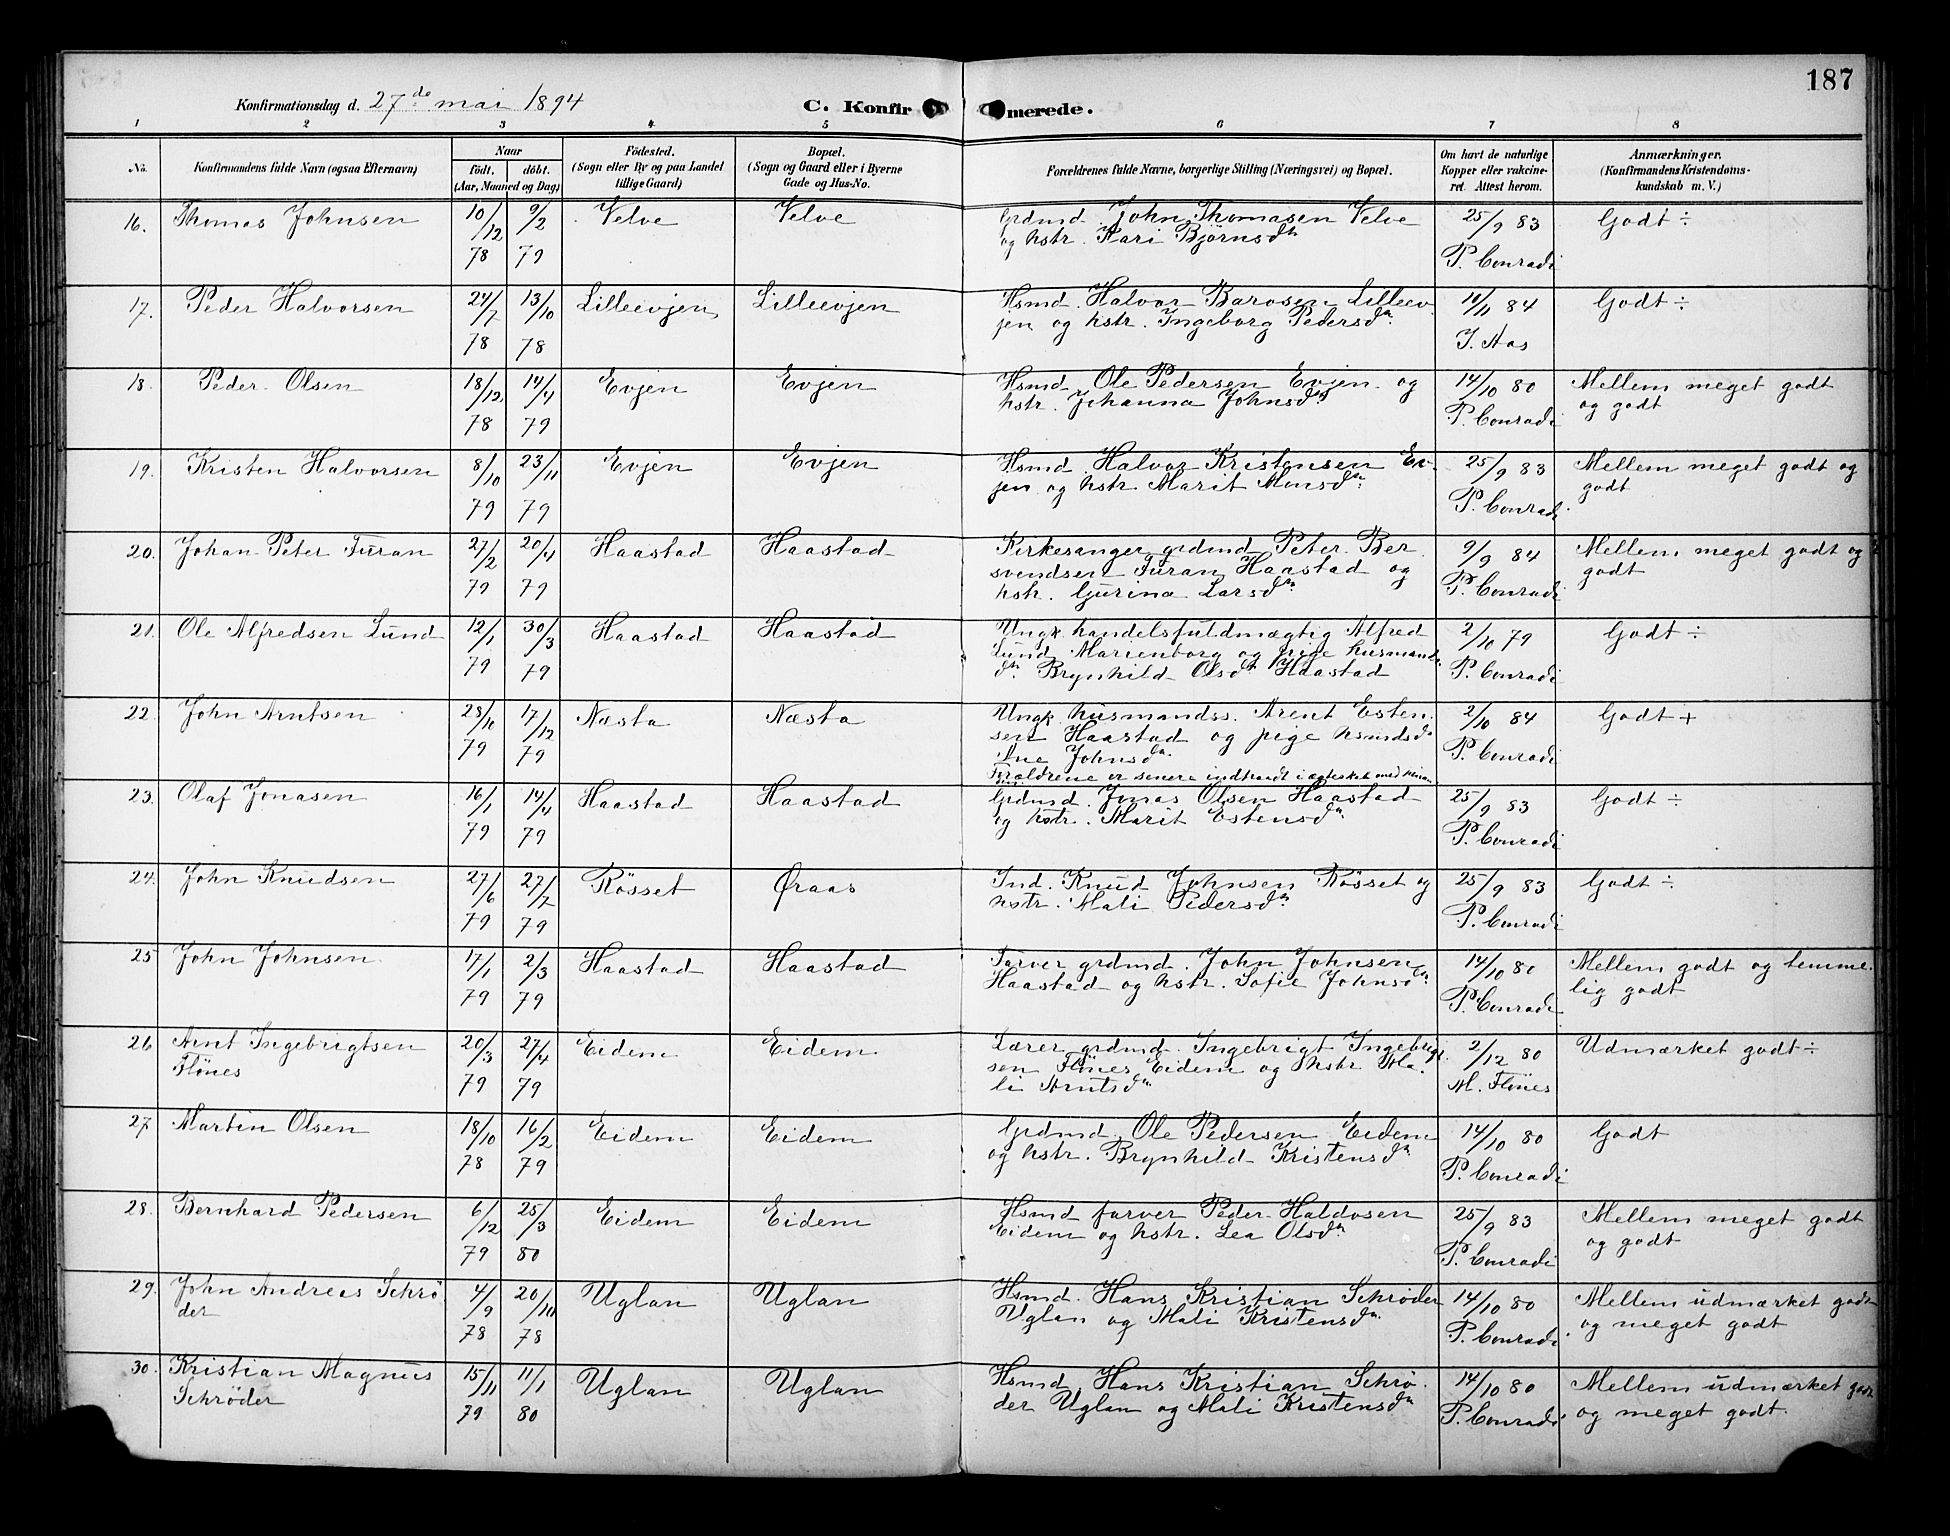 187
Konfirmationsdag d. 27de mai 1894 C. Konfirmerede.
1 2 3 4 5 6 7 8
No. Konfirmandens fulde Navn (ogsaa Efternavn) Naar født, døbt. (Aar, Maaned og Dag) Fødested. (Sogn eller By og paa Landet tillige Gaard) Bopæl. (Sogn og Gaard eller i Byerne Gade og Hus-No. Forældrenes fulde Navne, borgerlige Stilling (Næringsvei) og Bopæl. Om havt de naturlige Kopper eller vakcineret. Attest herom. Anmærkninger. (Konfirmandens Kristendomskundskab m. V.)
16. Thomas Johnsen 10/12 78 9/2 79 Velve Velve Grdmd. John Thomasen Velve
og hstr. Kari Björnsdtr 25/9 83 P. Conradi Godt ÷
17. Peder Halvorsen 24/7 78 13/10 78 Lilleevjen Lilleevjen Hsmd. Halvor Barosen Lilleev
jen og hstr. Ingeborg Pedersdtr. 10/11 84 J. Aas Godt ÷
18. Peder Olsen 18/12 78 14/4 79 Evjen Evjen Hsmd. Ole Pedersen Evjen og
hstr. Johanna Johnsdtr 14/10 80 P. Conradi Mellem meget godt
og godt
19. Kristen Halvorsen 8/10 79 23/11 79 Evjen Evjen Hsmd. Halvor Kristensen Ev.
jen og hstr. Marit Monsdtr 25/9 83 P. Conradi Mellem meget godt og
godt
20. Johan Peter Furan 27/2 79 20/4 79 Haastad Haastad Kirkesanger grdmd. Peter Ber
svendsen Furan Haastad og
hstr. Gurina Larsdtr 9/9 84 P. Conradi Mellem meget godt og
godt
21. Ole Alfredsen Lund 12/1 79 30/3 79 Haastad Haastad Ungk. handelsfuldmægtig Alfred
Lund Marienborg og pige husmands
dtr. Brynhild Olsdtr Haastad 2/10 79 P. Conradi Godt ÷
22. John Arntsen 28/10 79 17/12 79 Næsta Næsta Ungk. husmandss. Arent Esten
sen Haastad og pige hsmdsdtr
Ane Johnsdtr.
Forældrene er senere indtraadt i ægteskab med hinanden 2/10 84 P. Conradi Godt +
23. Olaf Jonasen 16/1 79 14/4 79 Haastad Haastad Grdmd. Jonas Olsen Haastad
og hstr. Marit Estensdtr. 25/9 83 P. Conradi Godt ÷
24. John Knudsen 27/6 79 27/7 79 Rösset Øraas Ind. Knud Johnsen Rösset og
hstr. Mali Pedersdtr 25/9 83 P. Conradi Godt ÷
25 John Johnsen 17/1 79 2/3 79 Haastad Haastad Farver grdmd. John Johnsen
Haastad og hstr. Sofie Johnsdtr 14/10 80 P. Conradi Mellem godt og temme-
lig godt
26 Arnt Ingebrigtsen
Flönes 20/3 79 27/4 79 Eidem Eidem Lærer grdmd. Ingebrigt Ingebrigt
sen Flönes Eidem og hstr Ma.
li Arntsdtr 2/12 80 M. Flönes Udmærket godt ÷
27 Martin Olsen 18/10 78 16/2 79 Eidem Eidem Grdmd. Ole Pedersen Eidem
og hstr. Brynhild Kristensdtr 14/10 80 P. Conradi Godt
28. Bernhard Pedersen 6/12 79 25/3 80 Eidem Eidem Hsmd farver Peder Haldosen
Eidem og hstr. Lea Olsdtr 25/9 83 P. Conradi Mellem meget godt
og godt
29. John Andreas Schrö
der 4/9 78 20/10 78 Uglan Uglan Hsmd. Hans Kristian Schrøder
Uglan og Mali Kristensdtr. 14/10 80 P. Conradi Mellem udmærket godt
og meget godt
30. Kristian Magnus
Schrøder 15/11 79 11/1 80 Uglan Uglan Hsmd. Hans Kristian Schrø.
der Uglan og Mali Kristensdtr 14/10 80 P. Conradi Mellem udmærket godt
og meget godt.